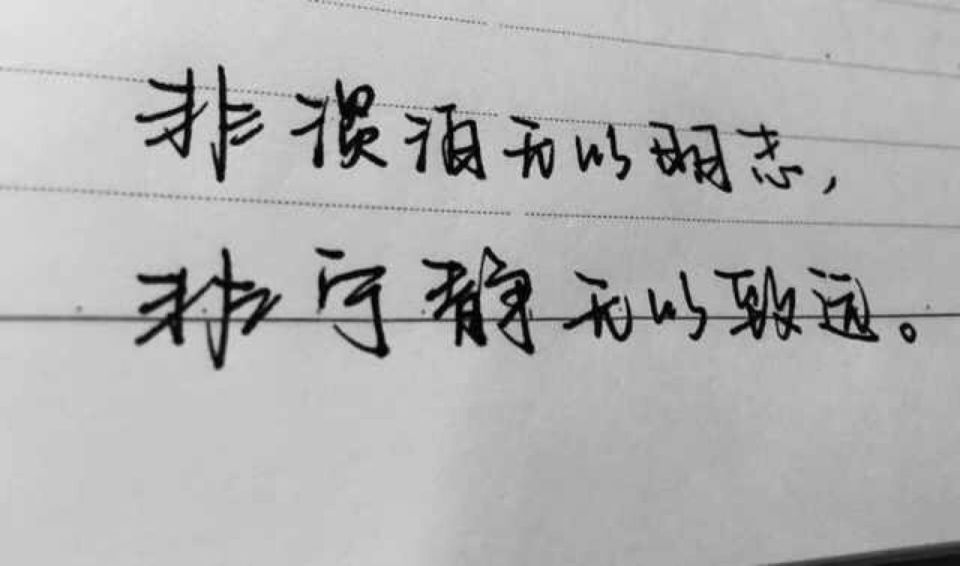 非淡泊无以明志，
非宁静无以致远。